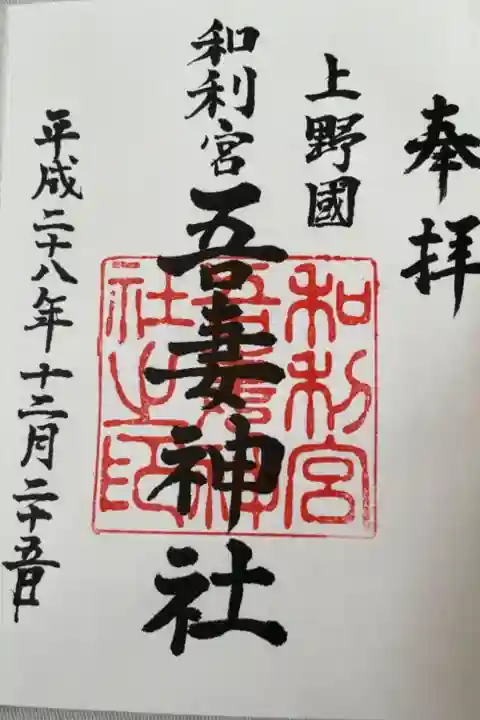 奉拝
上野國
和利宮
吾妻神社
平成二十八年十二月二十五日
和利宮
吾妻神
社之印